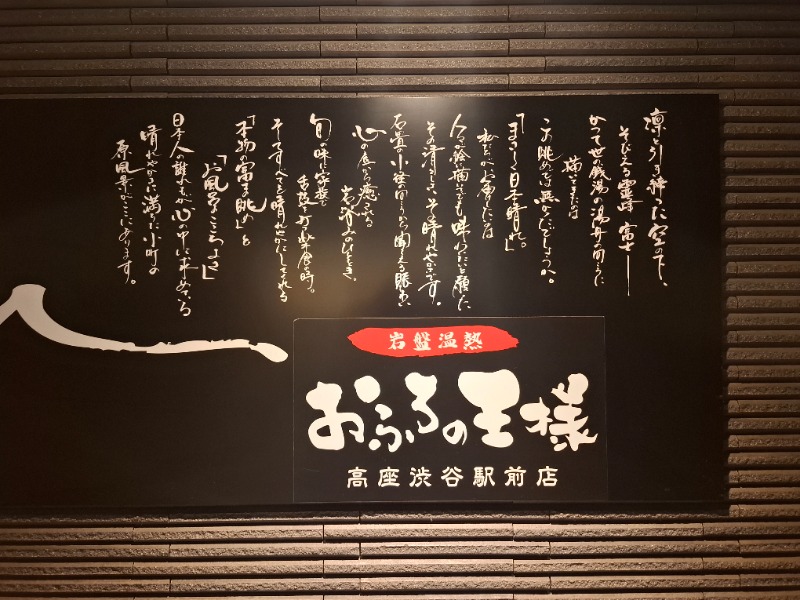 凛と引き締まった空の下、
そびえる霊峰 富士――
かつて世の銭湯の湯舟の向こうに
描きまたは
この眺めでは無かったでしょうか。
「まさしく日本晴れ。」
私たちがお届けしたいのは
人々が絵に描いてまでも味わいたいと願った
その清々しさ、その晴れやかさです。
石畳の小径の向こうから聞こえる賑わい
心の底から癒される
岩波のひととき。
旬の味に容姿
舌鼓を打つ楽食の時。
そのすべてを晴れやかにしてくれる
「本物の富士の眺め」と
「お風呂のここちよさ」
日本人の誰もが心の中に求めている
晴れやかさに満ちた小町の
原風景がここにあります。
岩盤温熱
おふろの王様
高座渋谷駅前店